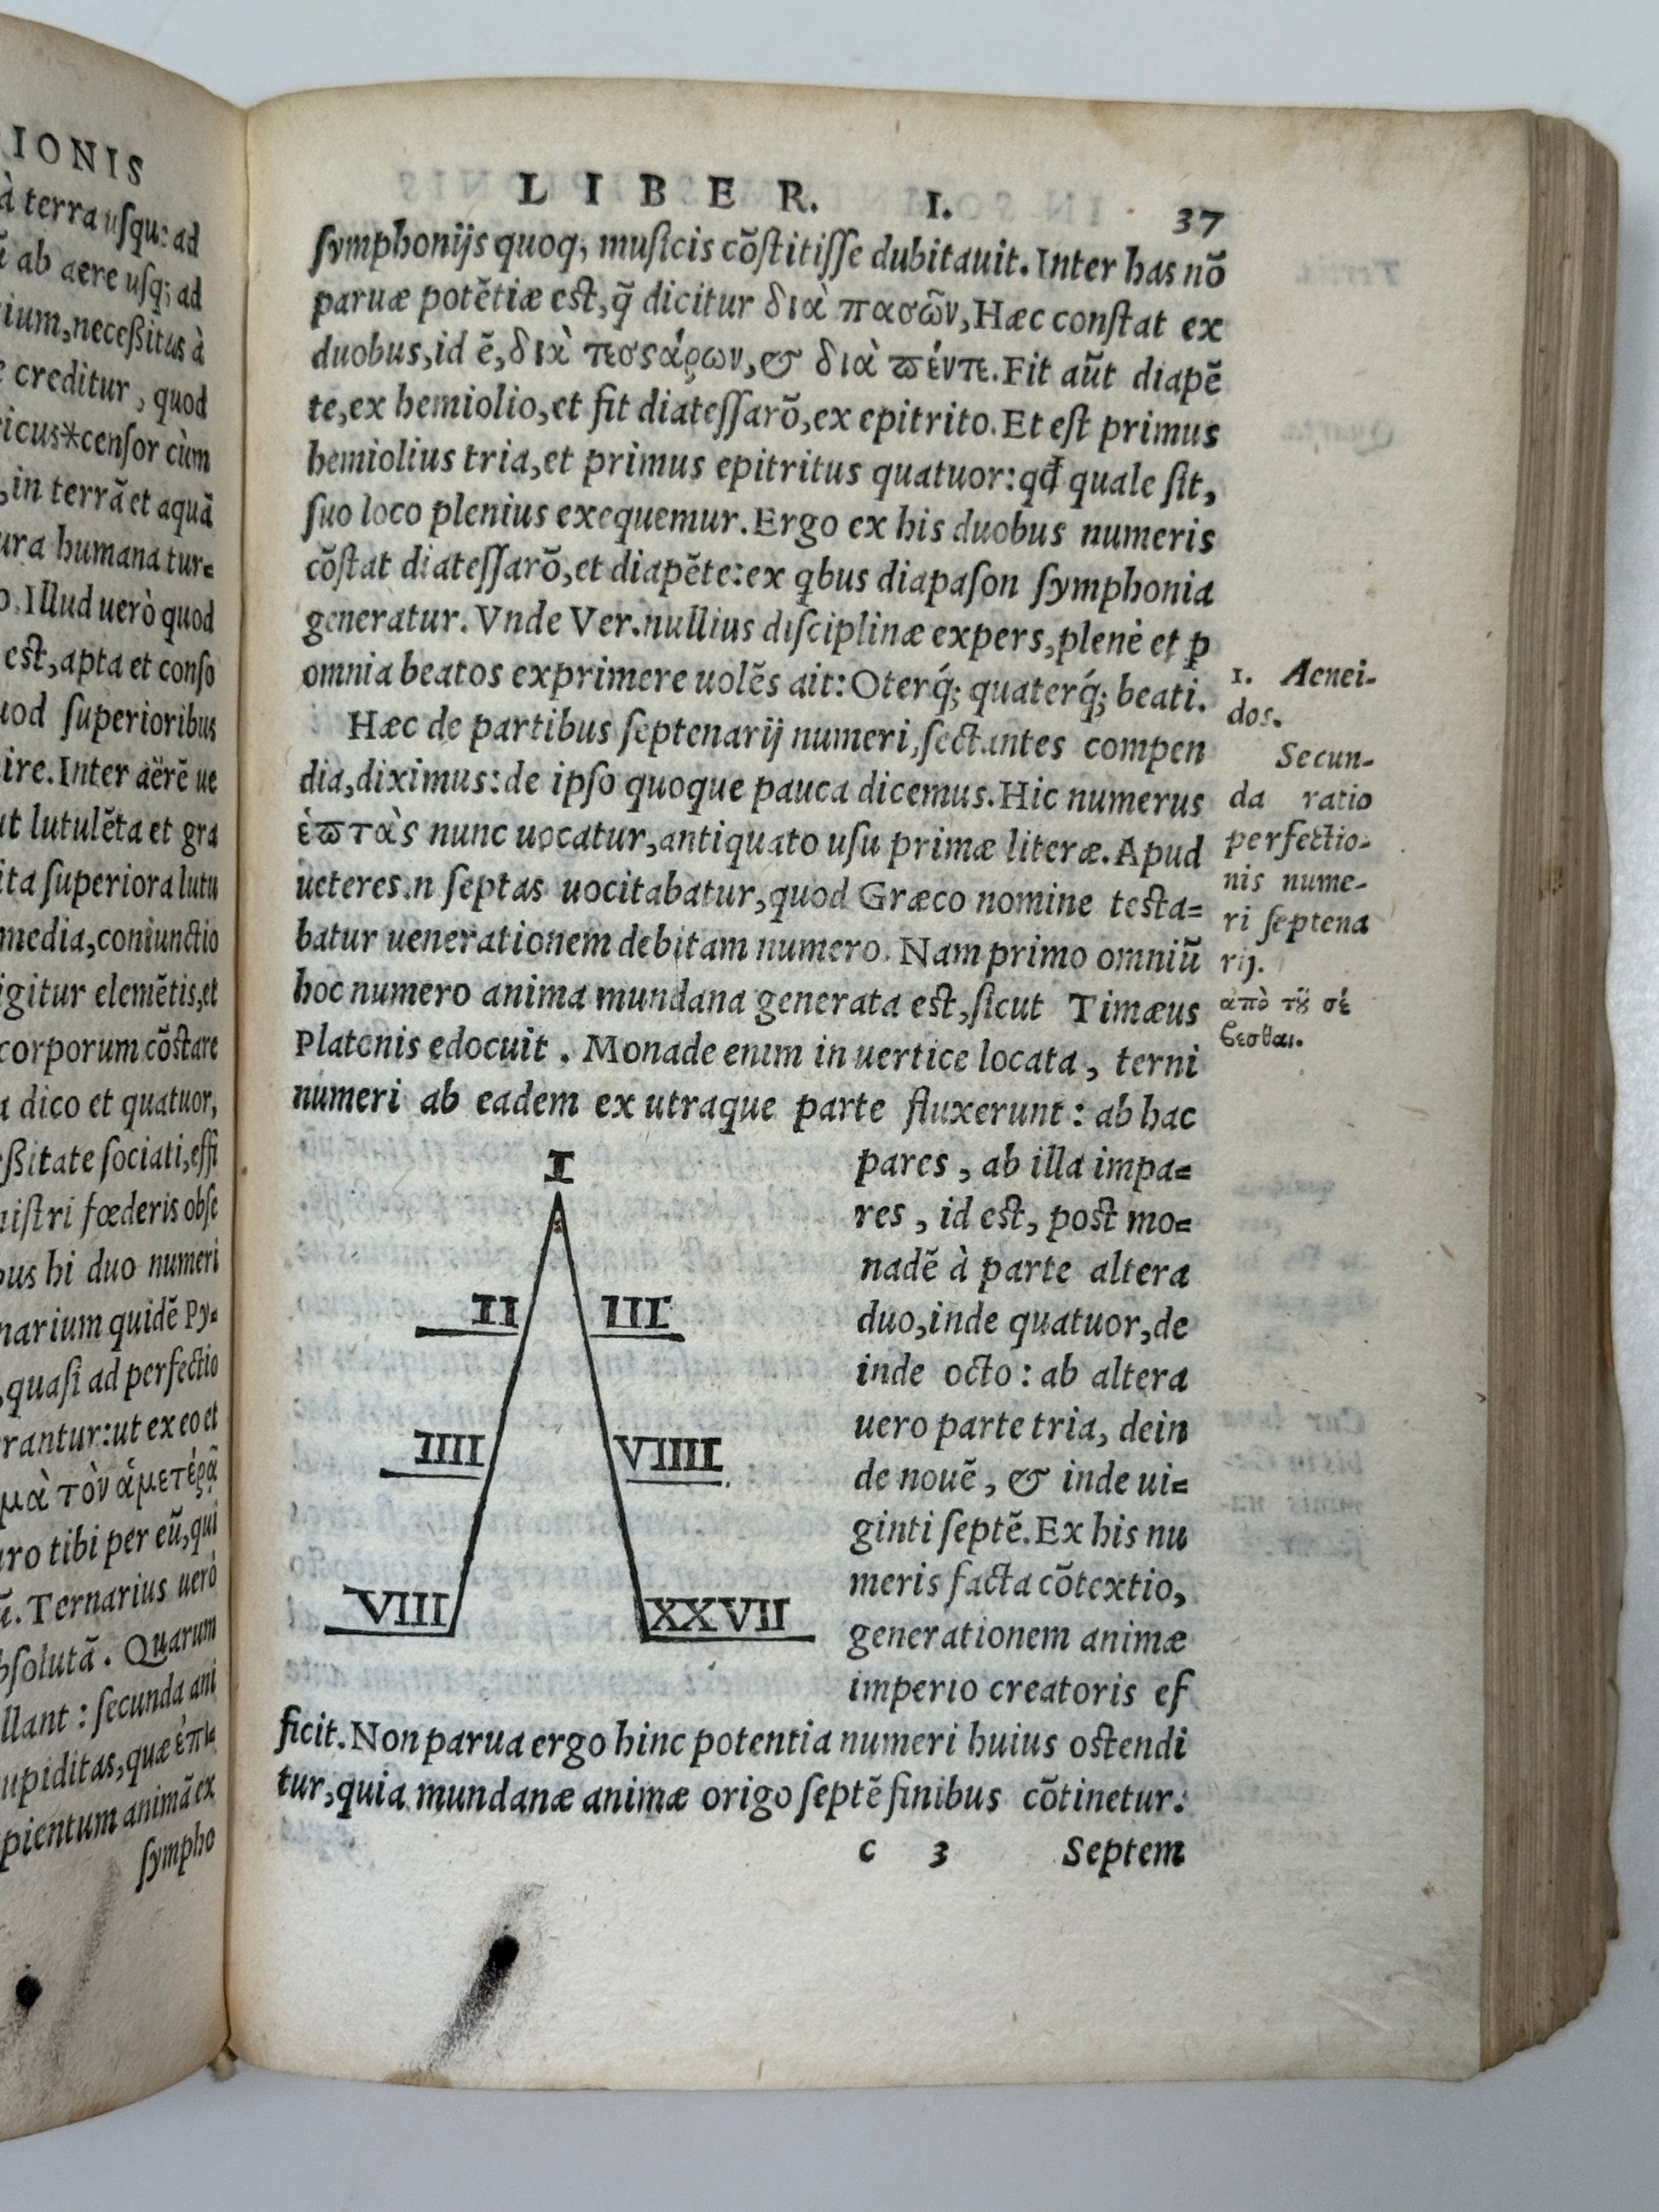 IONIS
à terra uſqu: ad
ab aere uſq; ad
ium, neceßitas à
creditur, quod
ricus*cenſor cùm
, in terrã et aquã
ura humana tur=
o. Illud uerò quod
est, apta et conſo
uod ſuperioribus
ire. Inter aërẽ ue
ut lutulẽta et gra
ita ſuperiora lutu
media, coniunctio
igitur elemẽtis, et
corporum cõſtare
a dico et quatuor,
ßitate ſociati, effi
niſtri fœderis obſe
bus hi duo numeri
narium quidẽ Py=
, quaſi ad perfectio
rantur: ut ex eo et
μὰ τὸν ἁμετέρᾳ
uro tibi per eũ, qui
. Ternarius uerò
bſolutã. Quarum
llant : ſecunda ani
upiditas, quæ ἐπι
pientum animã ex
ſympho
LIBER. I. 37
ſymphonijs quoq; muſicis cõſtitiſſe dubitauit. Inter has nõ
paruæ potẽtiæ est, q̃ dicitur διὰ πασῶν, Hæc conſtat ex
duobus, id ẽ, διὰ τεσσάρων, & διὰ πέντε. Fit aũt diapẽ
te, ex hemiolio, et fit diateſſarõ, ex epitrito. Et eſt primus
hemiolius tria, et primus epitritus quatuor: qđ quale ſit,
ſuo loco plenius exequemur. Ergo ex his duobus numeris
cõſtat diateſſarõ, et diapẽte: ex qbus diapaſon ſymphonia
generatur. Vnde Ver. nullius diſciplinæ expers, plenè et p
omnia beatos exprimere uolẽs ait: Oterq́; quaterq́; beati.
Hæc de partibus ſeptenarij numeri, ſectantes compen
dia, diximus: de ipſo quoque pauca dicemus. Hic numerus
ἑπτὰς nunc uocatur, antiquato uſu primæ literæ. Apud
ueteres.n ſeptas uocitabatur, quod Græco nomine teſta=
batur uenerationem debitam numero. Nam primo omniũ
hoc numero anima mundana generata est, ſicut Timæus
Platonis edocuit. Monade enim in uertice locata, terni
numeri ab eadem ex utraque parte fluxerunt : ab hac
pares, ab illa impa=
res, id est, post mo=
nadẽ à parte altera
duo, inde quatuor, de
inde octo : ab altera
uero parte tria, dein
de nouẽ, & inde ui=
ginti ſeptẽ. Ex his nu
meris facta cõtextio,
generationem animæ
imperio creatoris ef
I
II III
IIII VIIII
VIII XXVII
ficit. Non parua ergo hinc potentia numeri huius oſtendi
tur, quia mundanæ animæ origo ſeptẽ finibus cõtinetur.
c 3 Septem
1. Aenei-
dos.
Secun-
da ratio
perfectio-
nis nume-
ri ſeptena
rij.
ἀπὸ τȣ͂ σέ
βεσθαι.